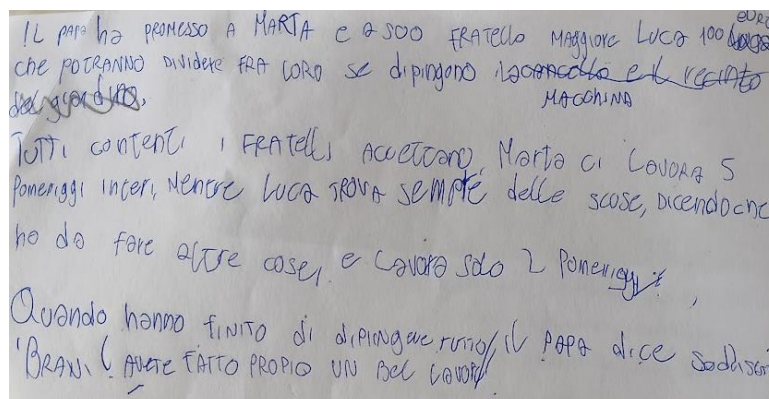 IL PAPA ha PROMESSO A MARTA e a SUO FRATELLO MAGGIORE LUCA 100 EURO
che POTRANNO DIVIDERE FRA LORO se dipingono la cancello e il recinto
MACCHINA
TUTTI contenti i FRATELLI ACCETTANO. Marta ci LAVORA 5
Pomeriggi interi, MENTRE LUCA TROVA SEMPRE delle scuse, DICENDO che
ha da fare altre cose, e lavora solo 2 Pomeriggi.
Quando hanno FINITO di dipingere TUTTO, il PAPA dice soddisf
"BRAVI! AVETE FATTO PROPIO UN BEL LAVORO